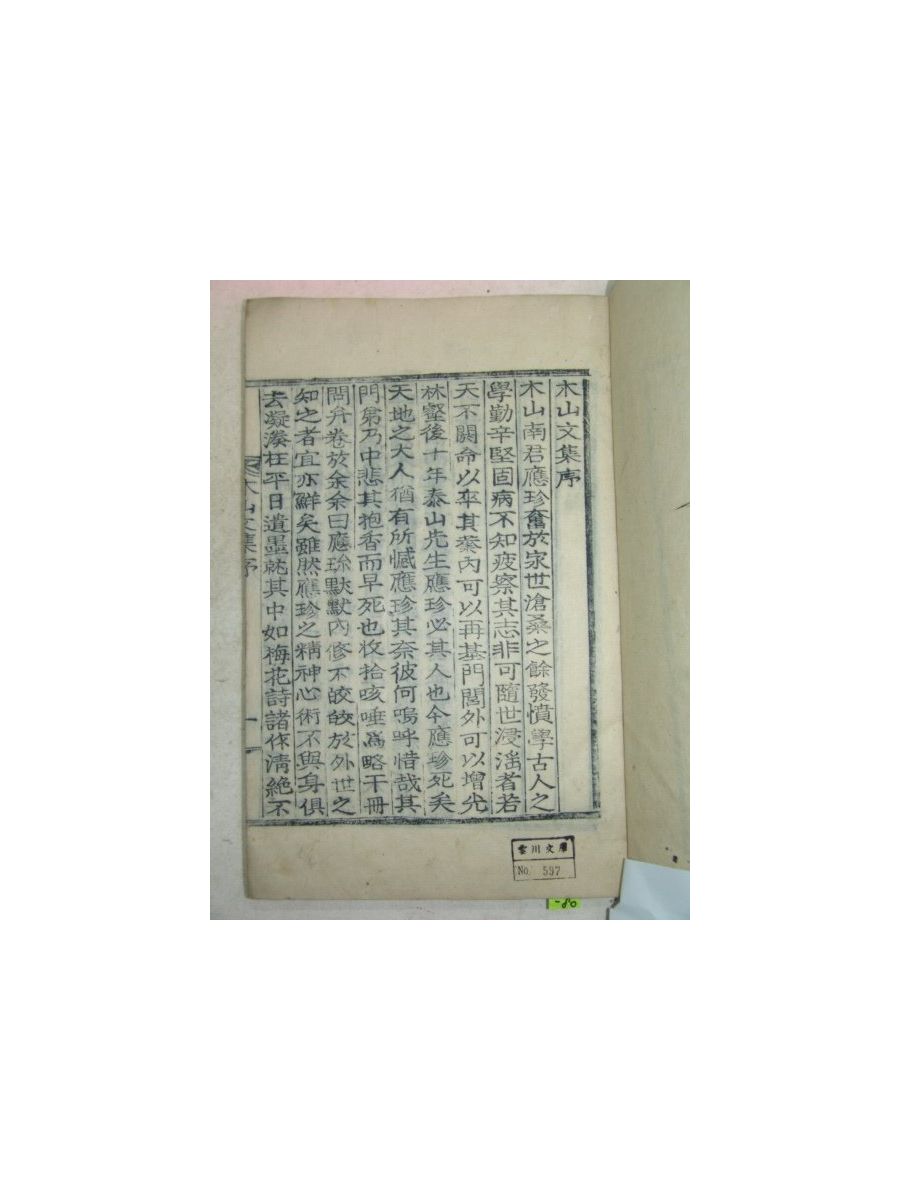 木山文集序
木山南君應珍奮於家世滄桑之餘發憤學古人之
學勤辛堅固病不知疲察其志非可隨世浸湓者若
天不閼命以卒其業內可以再基門閭外可以增光
林壑後十年泰山先生應珍必其人也今應珍死矣
天地之大人猶有所憾應珍其奈彼何嗚呼惜哉其
門弟乃中悲其抱香而早死也收拾咳唾爲略干冊
問弁卷於余余曰應珍默默內修不皎皎於外世之
知之者宜亦鮮矣雖然應珍之精神心術不與身俱
去凝湊在平日遺墨就其中如梅花詩諸作淸絶不
木山文集序
一
雲川文庫
No. 597
-80